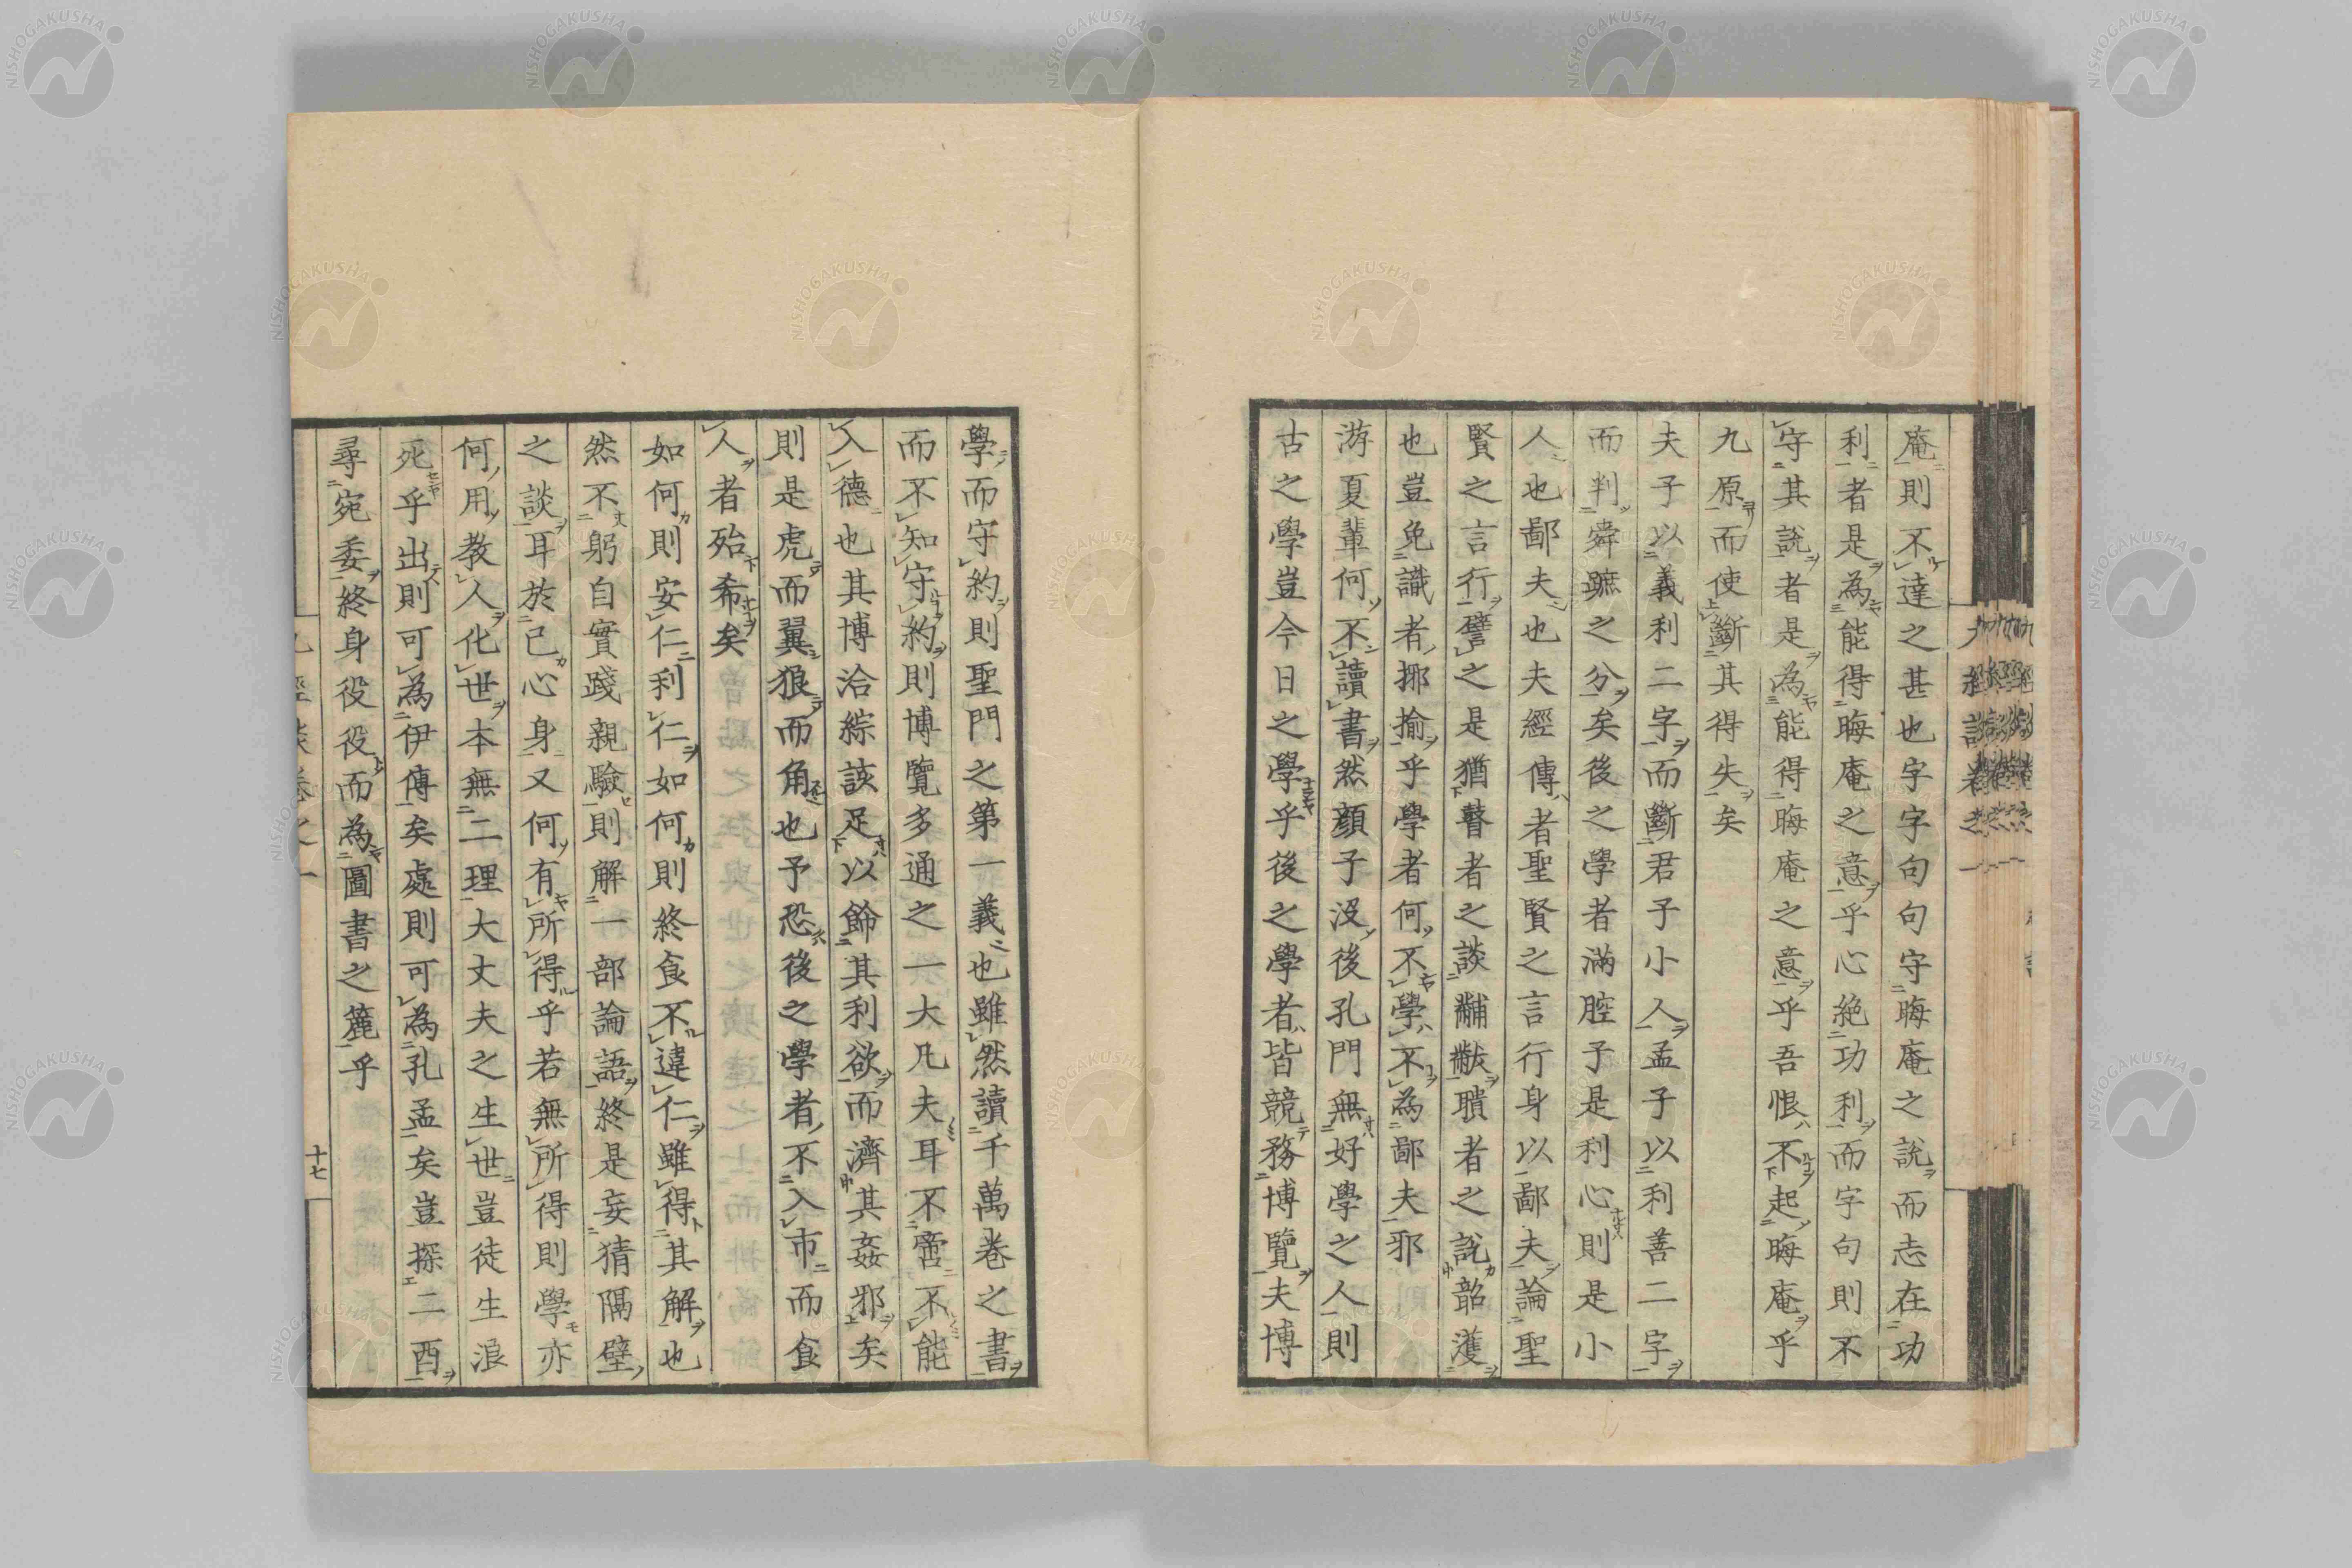 庵則不達之甚也字字句句守晦庵之說而志在功
利者是為能得晦庵之意乎心絶功利而字句則不
守其說者是為能得晦庵之意乎吾恨不起晦庵乎
九原而使斷其得失矣
夫子以義利二字而斷君子小人孟子以利善二字
而判舜蹠之分矣後之學者滿腔子是利心則是小
人也鄙夫也夫經傳者聖賢之言行身以鄙夫論聖
賢之言行譬之是猶瞽者之談黼黻聵者之說韶濩
也豈免識者揶揄乎學者何不學不為鄙夫邪
游夏輩何不讀書然顔子没後孔門無好學之人則
古之學豈今日之學乎後之學者皆競務博覽夫博
學而守約則聖門之第一義也雖然讀千萬卷之書
而不知守約則博覽多通之一大凡夫耳不啻不能
入德也其博洽綜該足以飾其利欲而濟其姦邪矣
則是虎而翼狼而角也予恐後之學者不入市而食
人者殆希矣
如何則安仁利仁如何則終食不違仁雖得其解也
然不躬自實踐親驗則解一部論語終是妄猜隔壁
之談耳於己心身又何有所得乎若無所得則學亦
何用教人化世本無二理大丈夫之生世豈徒生浪
死乎出則可為伊傅矣處則可為孔孟矣豈探二酉
尋宛委終身役役而為圖書之簏乎
十七
NISHOGAKUSHA